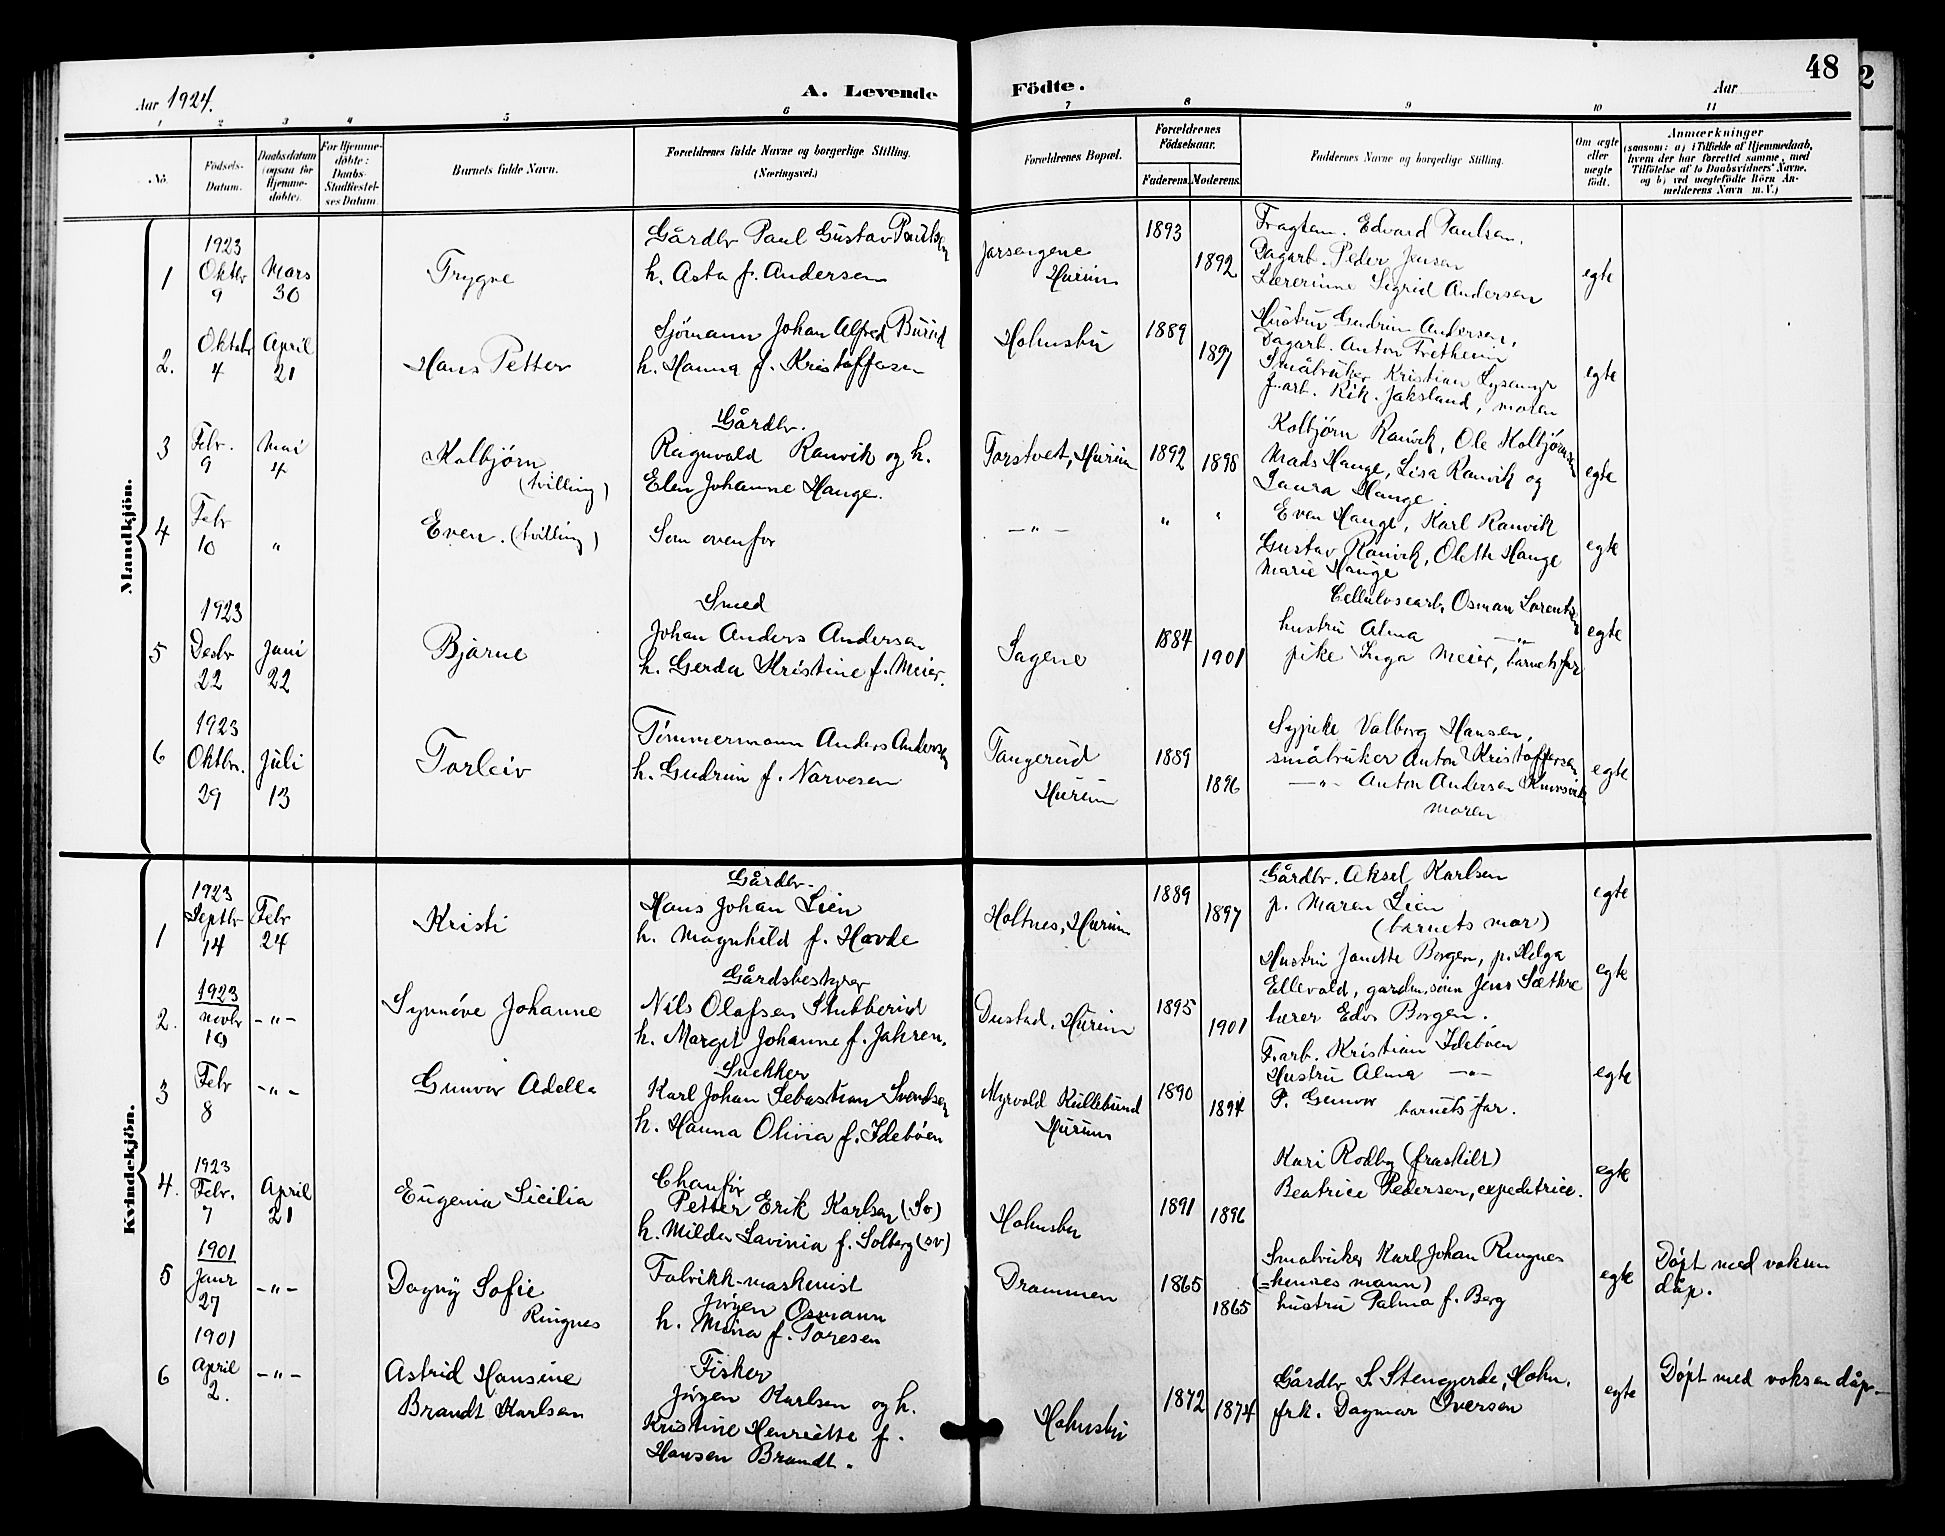 48
2
Aar 1924.
A. Levende Födte.
Aar
1 2 3 4 5 6 7 8 9 10 11
No.
Födsels-
Datum.
Daabsdatum
(ogsaa for
Hjemme-
döbte).
For Hjemme-
döbte:
Daabs-
Stadfæstel-
ses Datum.
Barnets fulde Navn.
Forældrenes fulde Navne og borgerlige Stilling.
(Næringsvei.)
Forældrenes Bopæl.
Forældrenes
Födselsaar.
Faderens. Moderens.
Faddernes Navne og borgerlige Stilling.
Om ægte
eller
uægte
födt.
Anmærkninger
(saasom: a) i Tilfælde af Hjemmedaab,
hvem der har forrettet samme, med
Tilföielse af to Daabsvidners Navne,
og b) ved uægtefödte Börn An-
melderens Navn m. V.)
Mandkjön.
1
1923
Oktbr
9
Mars
30
Trygve
Gårdbr Paul Gustav Paulsen
h. Asta f. Andersen
Jarsengene
Hurum
1893
1892
Fragtem. Edvard Paulsen,
Dagarb. Peder Jensen
Lærerinne Sigrid Andersen
egte
2.
Oktobr
4
April
21
Hans Petter
Sjömann Johan Alfred Burud
h. Hanna f. Kristoffersen
Holmsbu
1889
1897
Hustru Gudrun Andersen,
Dagarb. Anton Fretheim
Småbruker Kristian Lysemyr
f.arb. Rik. Jaksland, moren
egte
3
Febr.
9
Mai
4
Kolbjörn
(tvilling)
Gårdbr.
Ragnvald Ranvik og h.
Elen Johanne Hauge.
Torstvet, Hurum
1892
1898
Kolbjörn Ranvik, Ole Kolbjörnsen
Mads Hauge, Lisa Ranvik og
Laura Hauge.
egte
4
Febr
10
"
Even. (tvilling)
Som ovenfor
— " —
" "
Even Hauge, Karl Ranvik
Gustav Ranvik, Olette Hauge
Marie Hauge
egte
5
1923
Desbr
22
Juni
22
Bjarne
Smed
Johan Anders Andersen
h. Gerda Kristine f. Meier.
Sagene
1884
1901
Cellulosearb. Osman Lorentsen
hustru Alma — " —
pike Inga Meier, barnets far
egte
6
1923
Oktbr.
29
Juli
13
Torleiv
Tömmermann Anders Andersen
h. Gudrun f. Narvesen
Tangerud
Hurum
1889
1896
Sypike Valborg Hansen,
småbruker Anton Kristoffersen
— " — Anton Andersen
moren
egte
Kvindekjön.
1
1923
Septbr
14
Febr
24
Kristi
Gårdbr.
Hans Johan Lien
h. Magnhild f. Hovde
Holtnes, Hurum
1889
1897
Gårdbr. Aksel Karlsen
p. Maren Lien
(barnets mor)
egte
2.
1923
Novbr
10
— " —
Synnöve Johanne
Gårdsbestyrer
Nils Olafsen Stubberud
h. Margit Johanne f. Jahren.
Dustad, Hurum
1895
1901
Hustru Janette Borgen, p. Helga
Ellevold, gardm.sönn Jens Sæthre
lærer Edv. Borgen.
egte
3
Febr
8
— " —
Gunvor Adella
Snekker
Karl Johan Sebastian Svendsen
h. Hanna Olivia f. Ideböen
Myrvold Kullebund
Hurum
1890
1894
F.arb. Kristian Ideböen
Hustru Alma — " —
P. Gunvor barnets far.
egte
4.
1923
Febr.
7
April
21
Eugenia Sicilia
Chauför
Petter Erik Karlsen (Sv)
h. Milda Lavinia f. Solberg (sv)
Holmsbu
1891
1896
Kari Rodby (fraskilt)
Beatrice Pedersen, expeditrice.
egte
5
1901
Janr
27
— " —
Dagny Sofie
Ringnes
Fabrikk-maskinist
Jörgen Osmann
h. Mina f. Toresen
Drammen
1865
1865
Småbruker Karl Johan Ringnes
(= hennes mann)
hustru Palma f. Berg
egte
Döpt med voksen
dåp.
6
1901
April
2.
— " —
Astrid Hansine
Brandt Karlsen
Fisker
Jörgen Karlsen og h.
Kristine Henriette f.
Hansen Brandt.
Holmsbu
1872
1874
Gårdbr S. Stengjerde, Holm.
frk. Dagmar Iversen
egte
Döpt med voksen dåp.